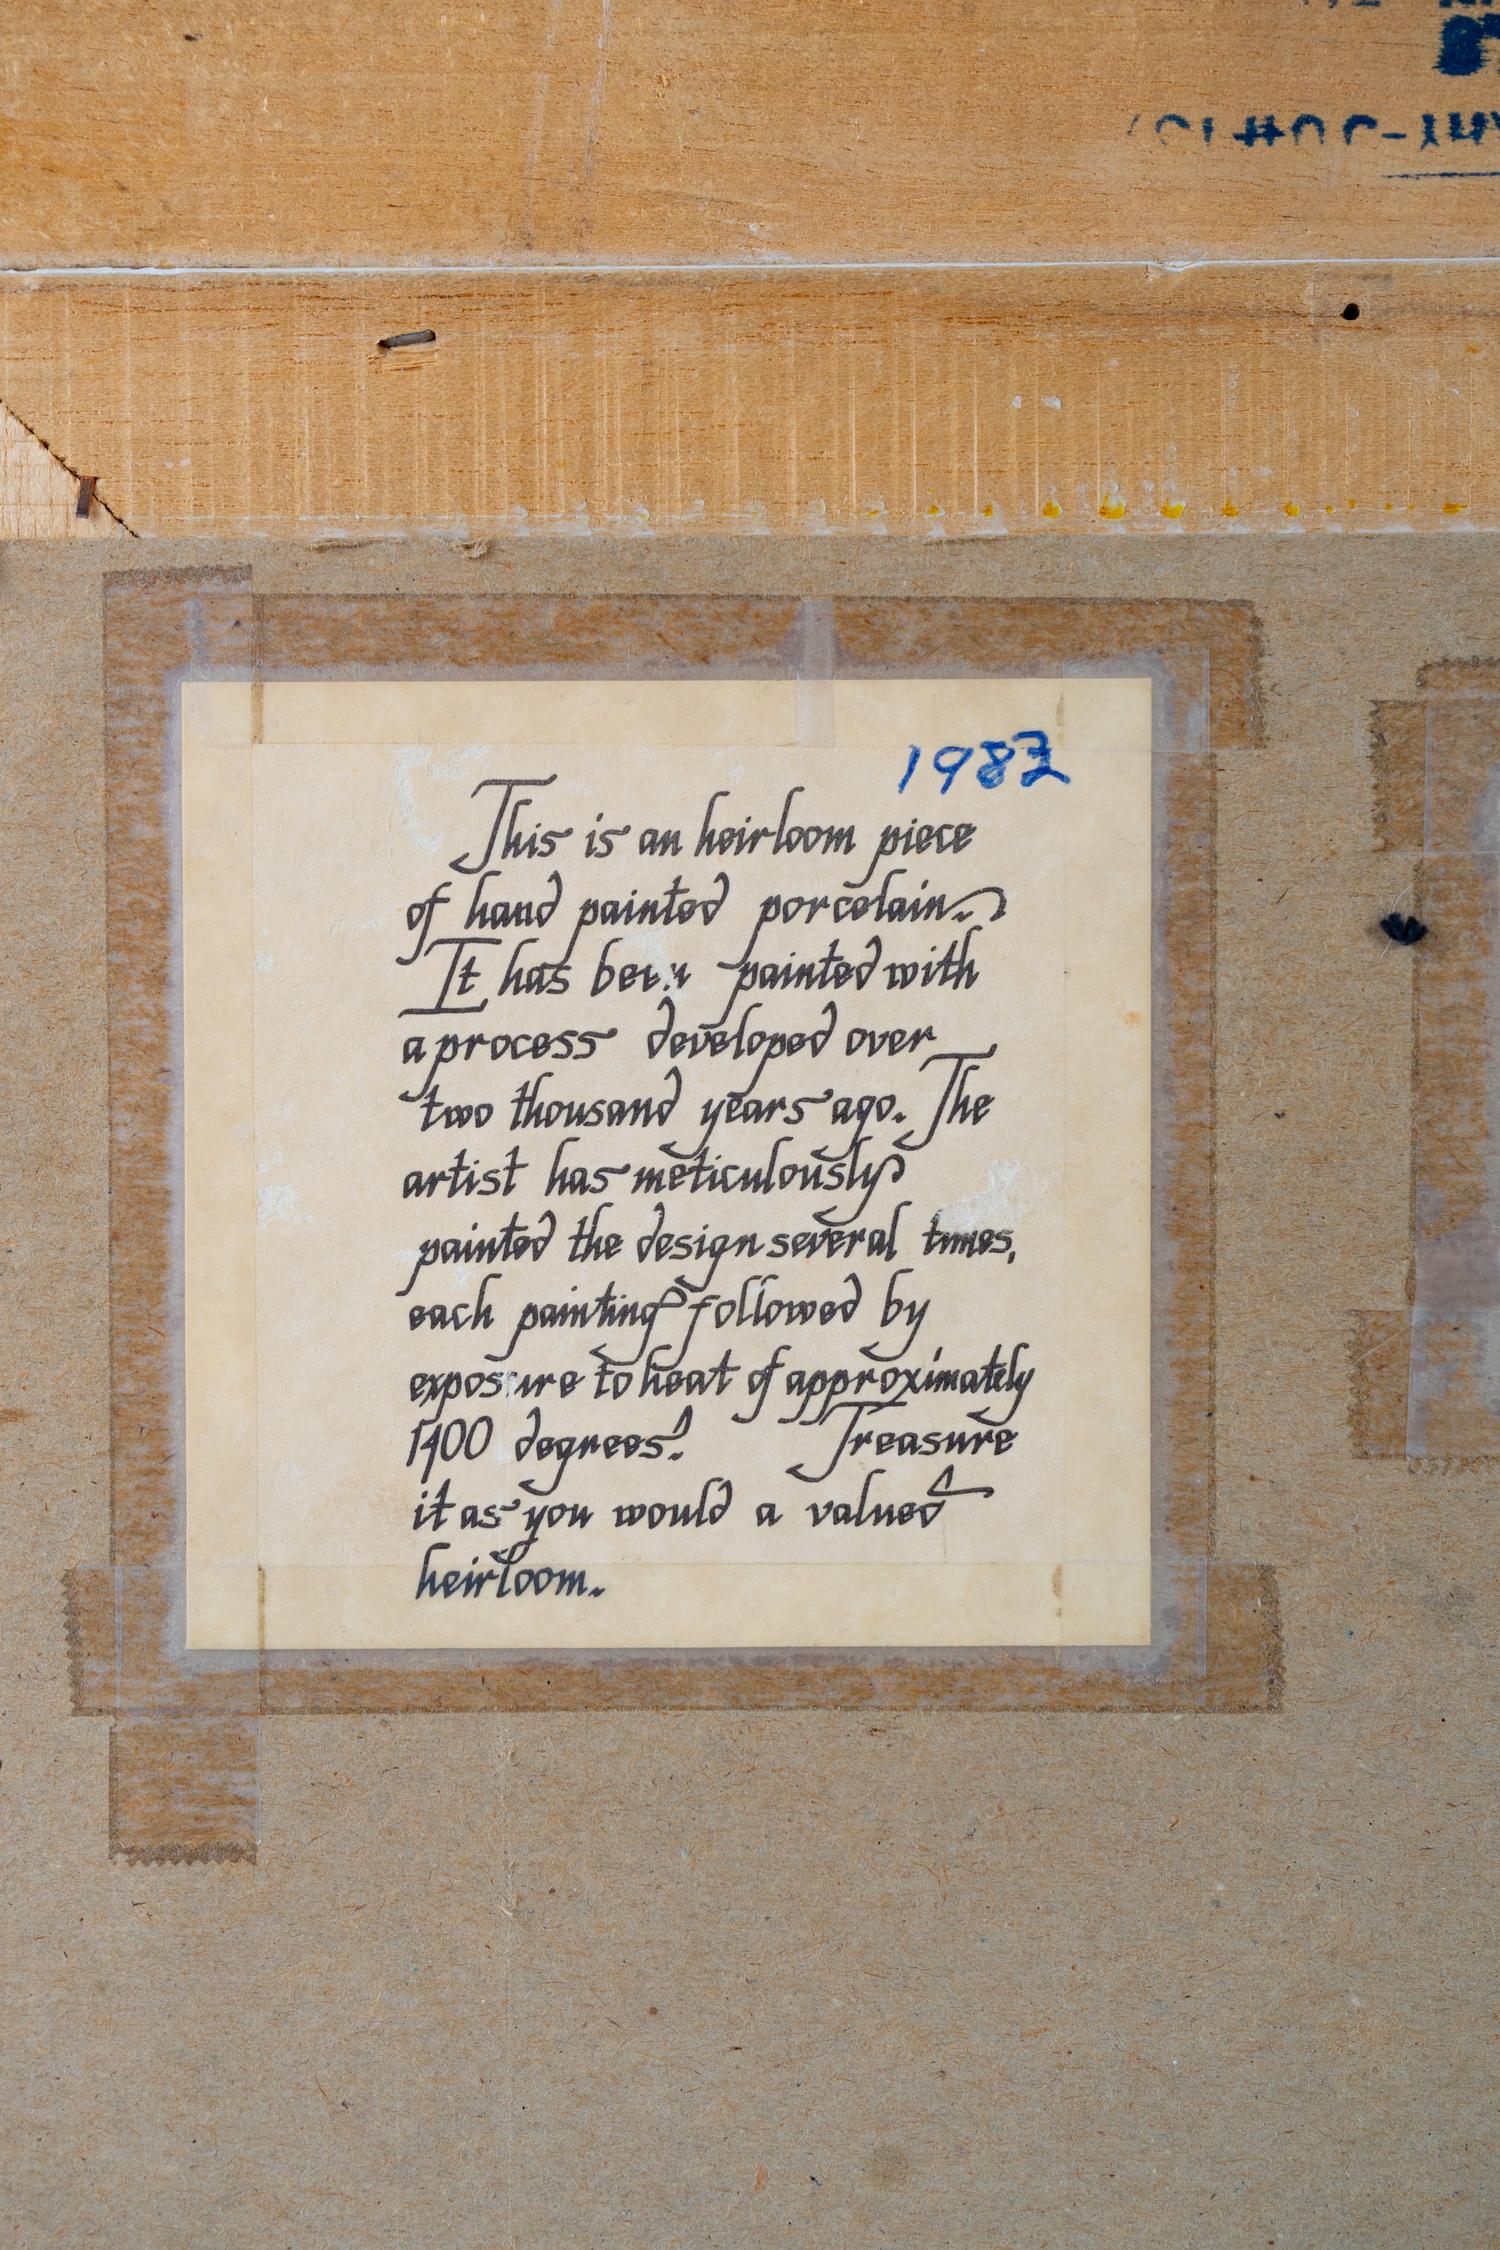 1982
This is an heirloom piece
of hand painted porcelain.
It has been painted with
a process developed over
two thousand years ago. The
artist has meticulously
painted the design several times,
each painting followed by
exposure to heat of approximately
1400 degrees. Treasure
it as you would a valued
heirloom.